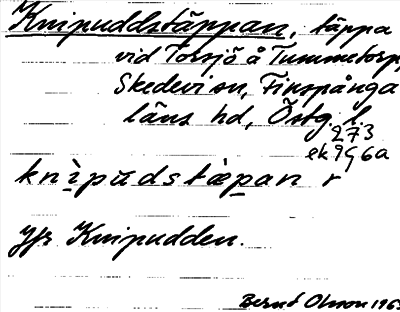 Knipuddstäppan, täppa
vid Torsjö å Tummetorp,
Skedevi sn, Finspånga
läns hd, Östg. l.
273
ek 9G6a
knìpudstæpan r
Jfr Knipudden.
Bernt Olsson 1965